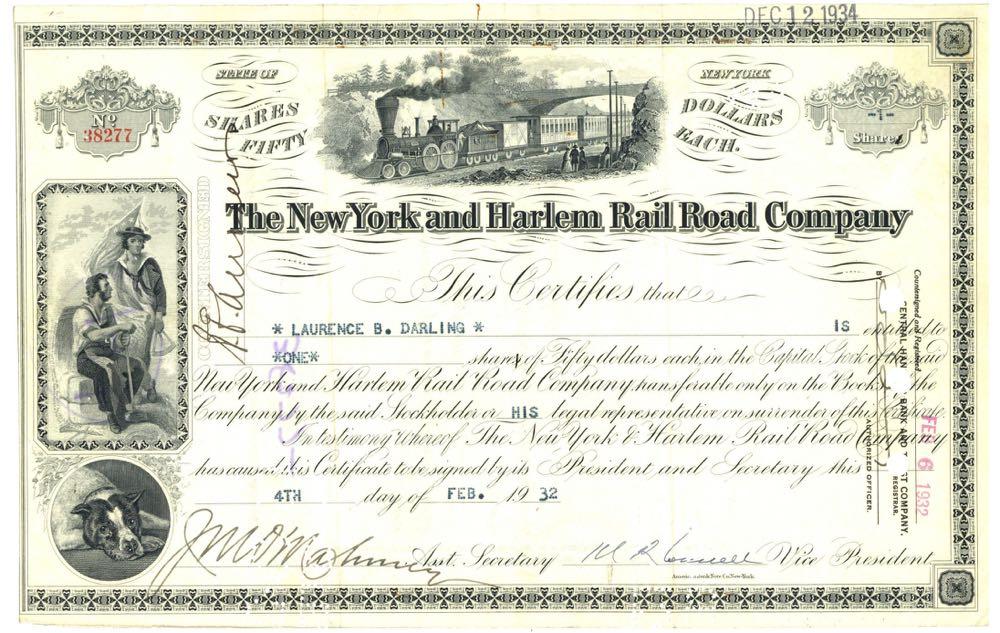 DEC 12 1934
STATE OF NEW YORK
No 38277
SHARES FIFTY
DOLLARS EACH.
Share
COUNTERSIGNED
The New York and Harlem Rail Road Company
This Certifies that
* LAURENCE B. DARLING * IS entitled to
*ONE* shares of Fifty dollars each, in the Capital Stock of the said
New York and Harlem Rail Road Company, transferable only on the Books of the
Company, by the said Stockholder or HIS legal representative on surrender of this Certificate.
In testimony whereof The New York & Harlem Rail Road Company
has caused this Certificate to be signed by its President and Secretary this
4TH day of FEB. 1932
Asst. Secretary
Vice President
American Bank Note Co. New York.
Countersigned and Registered
CENTRAL HAN BANK AND T ST COMPANY.
REGISTRAR.
BY
AUTHORIZED OFFICER.
FEB 6 1932